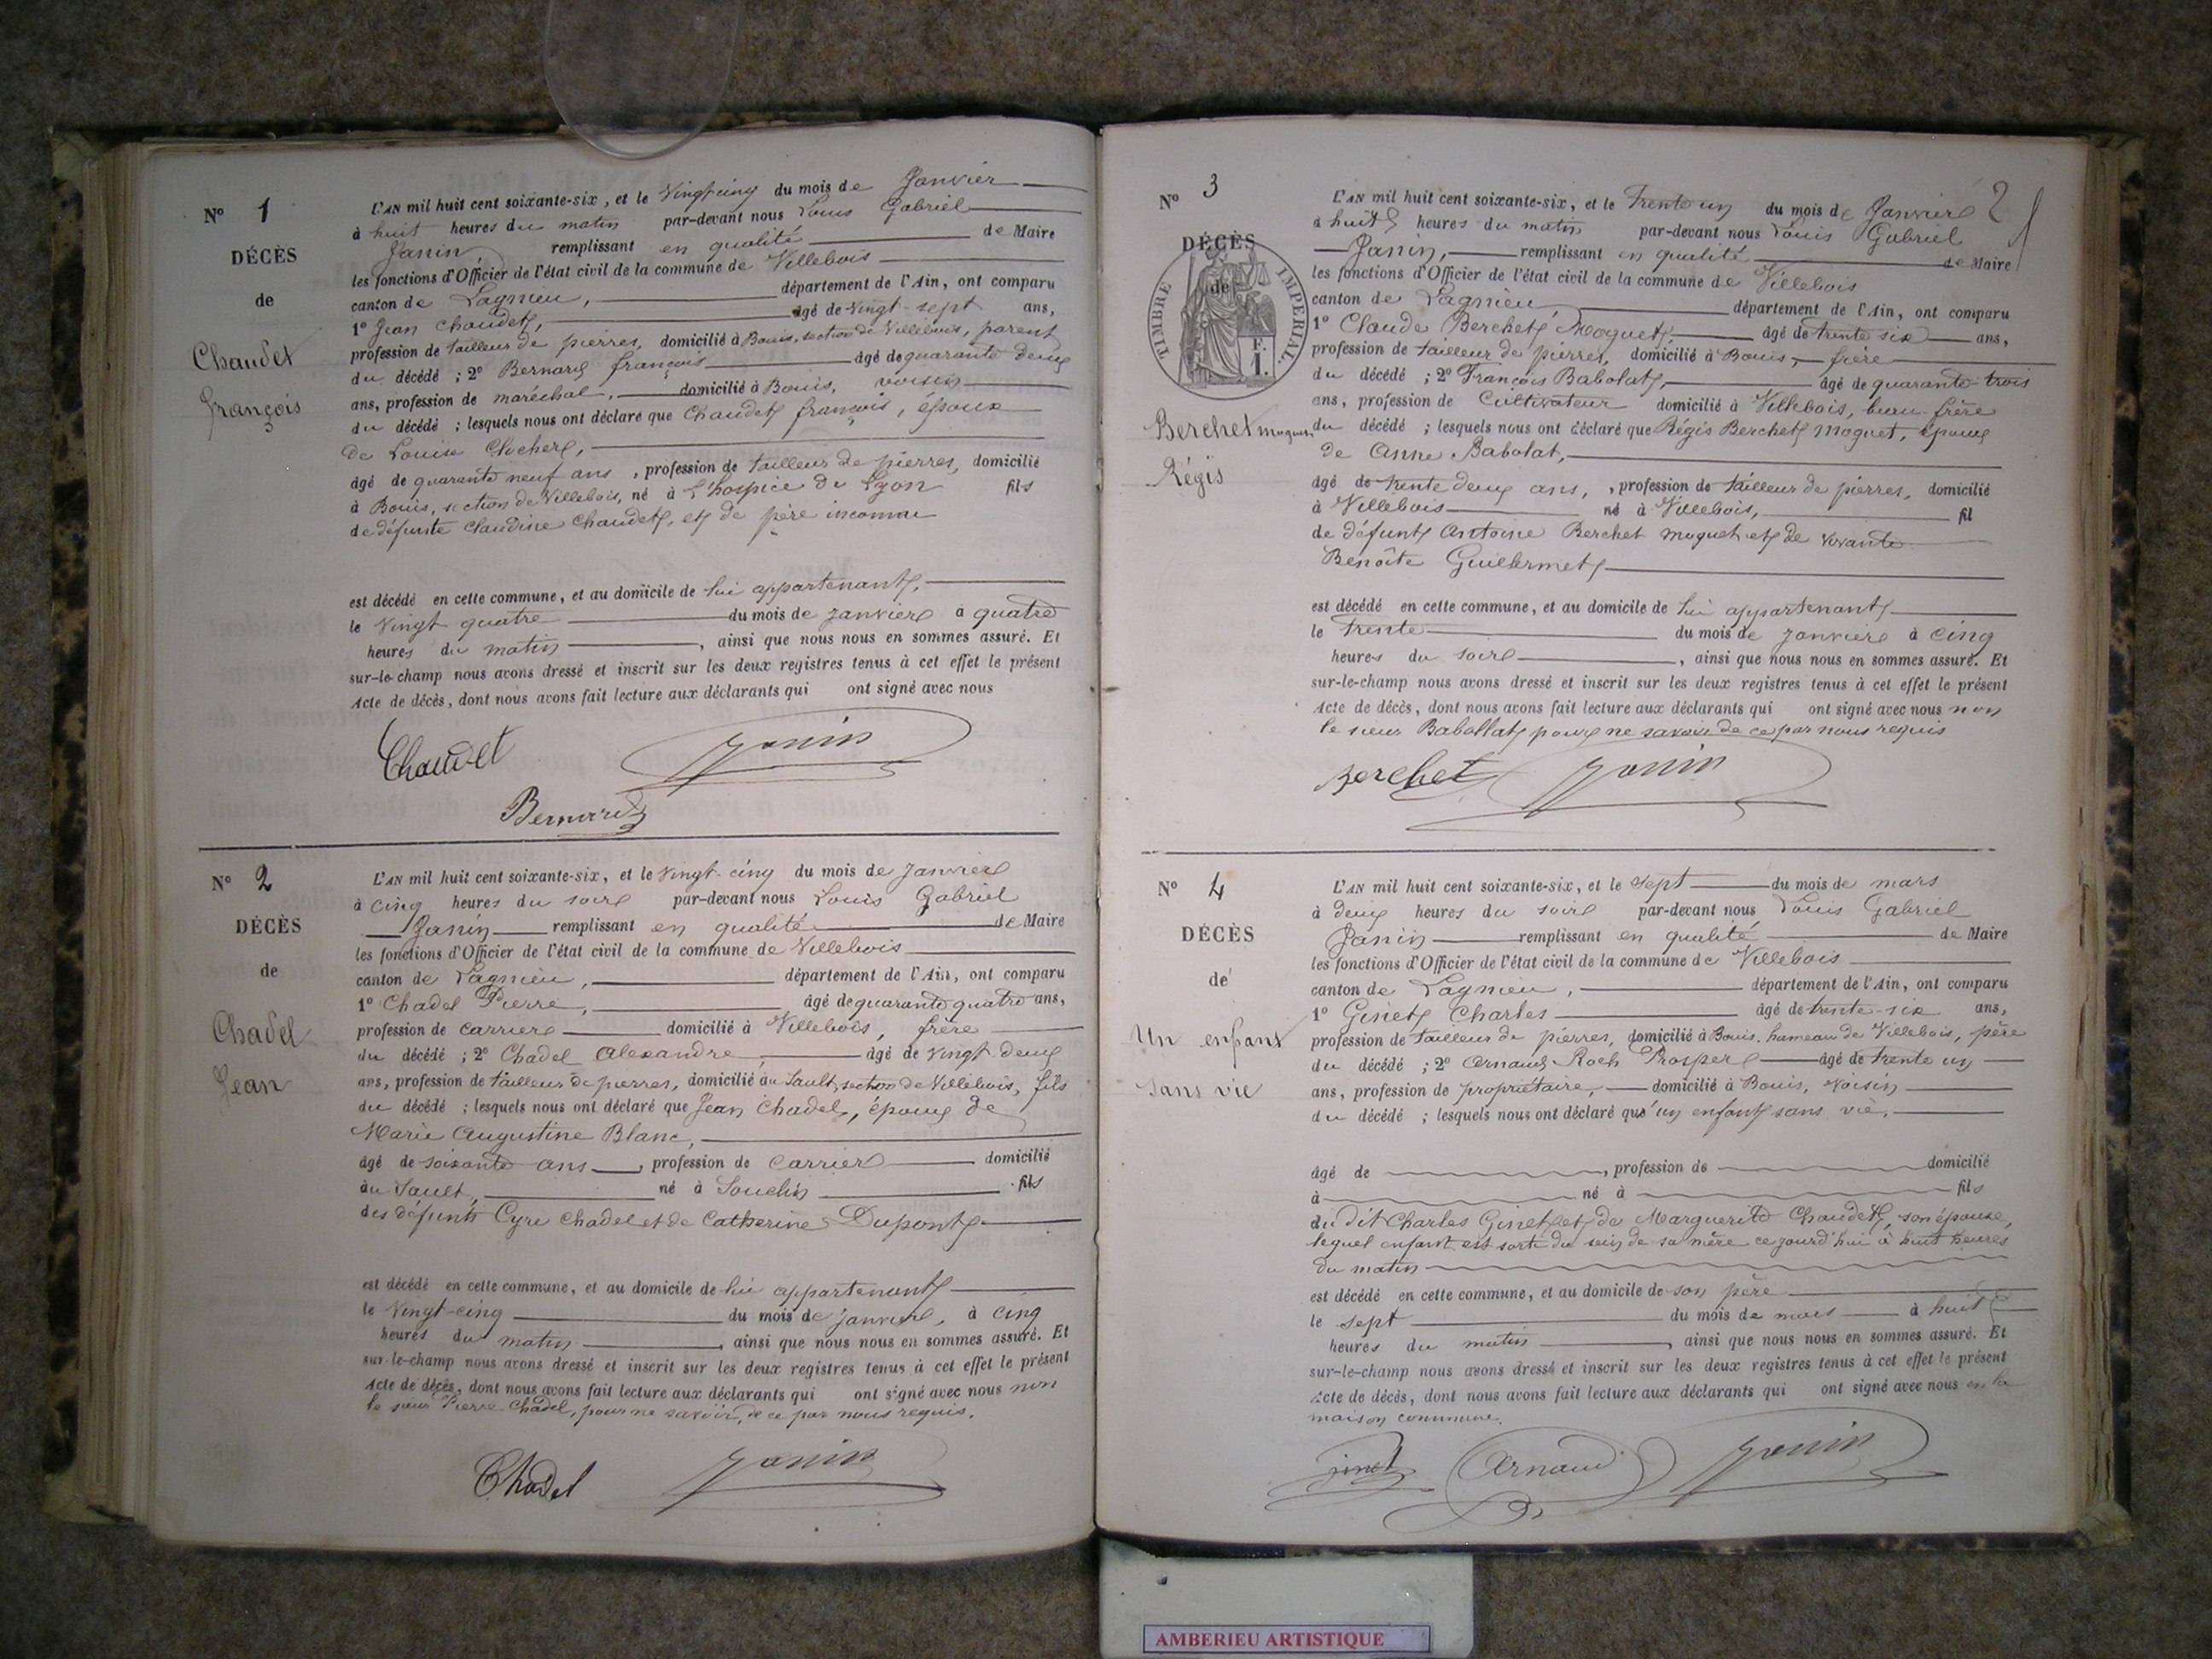 N° 1
DÉCÈS
de
Chaudet
François
L'AN mil huit cent soixante-six, et le Vingt cinq du mois de Janvier
à huit heures du matin par-devant nous Louis Gabriel
Janin remplissant en qualité de Maire
les fonctions d'Officier de l'état civil de la commune de Villebois
canton de Lagnieu, département de l'Ain, ont comparu
1° Jean Chaudet, âgé de Vingt-sept ans,
profession de tailleur de pierres, domicilié à Bouis, section de Villebois, parent
du décédé ; 2° Bernard françois âgé de quarante deux
ans, profession de maréchal, domicilié à Bouis, voisin
du décédé ; lesquels nous ont déclaré que Chaudet françois, époux
de Louise Clocher,
âgé de quarante neuf ans, profession de tailleur de pierres, domicilié
à Bouis, section de Villebois, né à L'hospice de Lyon fils
de défunte Claudine Chaudet, et de père inconnu
est décédé en cette commune, et au domicile de lui appartenant,
le Vingt quatre du mois de janvier à quatre
heures du matin, ainsi que nous nous en sommes assuré. Et
sur-le-champ nous avons dressé et inscrit sur les deux registres tenus à cet effet le présent
Acte de décès, dont nous avons fait lecture aux déclarants qui ont signé avec nous
Chaudet Janin
Bernard
N° 2
DÉCÈS
de
Chadel
Jean
L'AN mil huit cent soixante-six, et le Vingt-cinq du mois de Janvier
à cinq heures du soir par-devant nous Louis Gabriel
Janin remplissant en qualité de Maire
les fonctions d'Officier de l'état civil de la commune de Villebois
canton de Lagnieu, département de l'Ain, ont comparu
1° Chadel Pierre, âgé de quarante quatre ans,
profession de carrier domicilié à Villebois, frère
du décédé ; 2° Chadel Alexandre, âgé de vingt deux
ans, profession de tailleur de pierres, domicilié au Sault, section de Villebois, fils
du décédé ; lesquels nous ont déclaré que Jean Chadel, époux de
Marie Augustine Blanc,
âgé de soixante ans, profession de carrier domicilié
au Sault, né à Souclin fils
des défunts Cyre Chadel et de Catherine Dupont
est décédé en cette commune, et au domicile de lui appartenant
le Vingt-cinq du mois de janvier, à cinq
heures du matin, ainsi que nous nous en sommes assuré. Et
sur-le-champ nous avons dressé et inscrit sur les deux registres tenus à cet effet le présent
Acte de décès, dont nous avons fait lecture aux déclarants qui ont signé avec nous non
le sieur Pierre Chadel, pour ne savoir, de ce par nous requis.
Chadel Janin
2
N° 3
DÉCÈS
de
TIMBRE IMPERIAL.
F.
1.
Berchet moguet
Régis
L'AN mil huit cent soixante-six, et le Trente un du mois de Janvier
à huit heures du matin par-devant nous Louis Gabriel
Janin, remplissant en qualité de Maire
les fonctions d'Officier de l'état civil de la commune de Villebois
canton de Lagnieu, département de l'Ain, ont comparu
1° Claude Berchet Moguet, âgé de trente six ans,
profession de tailleur de pierres, domicilié à Bouis, frère
du décédé ; 2° François Babolat, âgé de quarante trois
ans, profession de Cultivateur domicilié à Villebois, beau-frère
du décédé ; lesquels nous ont déclaré que Régis Berchet Moguet, époux
de Anne Babolat,
âgé de trente deux ans, profession de tailleur de pierres, domicilié
à Villebois né à Villebois, fil
de défunt Antoine Berchet moguet et de vivante
Benoîte Guillermet
est décédé en cette commune, et au domicile de lui appartenant
le trente du mois de janvier à cinq
heures du soir, ainsi que nous nous en sommes assuré. Et
sur-le-champ nous avons dressé et inscrit sur les deux registres tenus à cet effet le présent
Acte de décès, dont nous avons fait lecture aux déclarants qui ont signé avec nous non
le sieur Babollat pour ne savoir de ce par nous requis
Berchet Janin
N° 4
DÉCÈS
de
Un enfant
sans vie
L'AN mil huit cent soixante-six, et le sept du mois de mars
à deux heures du soir par-devant nous Louis Gabriel
Janin remplissant en qualité de Maire
les fonctions d'Officier de l'état civil de la commune de Villebois
canton de Lagnieu, département de l'Ain, ont comparu
1° Ginet Charles âgé de trente-six ans,
profession de tailleur de pierres, domicilié à Bouis. hameau de Villebois, père
du décédé ; 2° Arnaud Roch Prosper âgé de trente un
ans, profession de propriétaire, domicilié à Bouis, voisin
du décédé ; lesquels nous ont déclaré qu'un enfant sans vie,
âgé de, profession de domicilié
à né à fils
du dit Charles Ginet et de Marguerite Chaudet, son épouse,
lequel enfant est sorti du sein de sa mère ce jourd'hui à huit heures
du matin
est décédé en cette commune, et au domicile de son père
le sept du mois de mars à huit
heures du matin, ainsi que nous nous en sommes assuré. Et
sur-le-champ nous avons dressé et inscrit sur les deux registres tenus à cet effet le présent
Acte de décès, dont nous avons fait lecture aux déclarants qui ont signé avec nous en la
maison commune.
jinet Arnaud Janin
AMBERIEU ARTISTIQUE